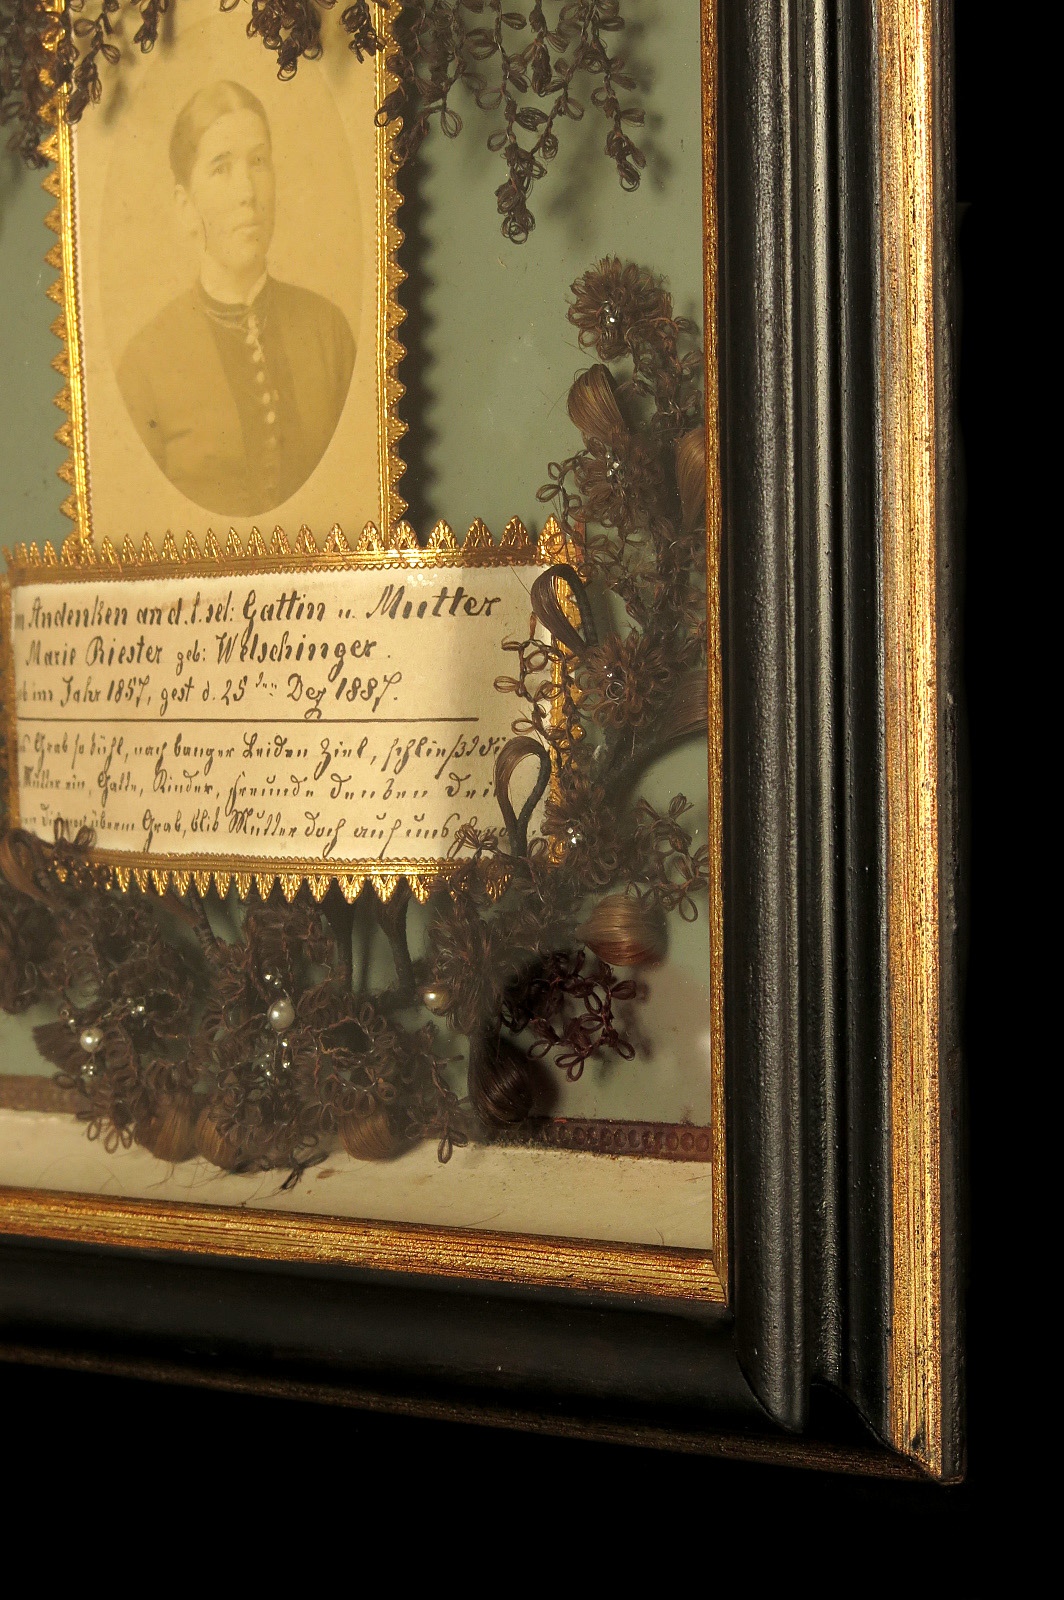 Andenken an d. l. sel: Gattin u. Mutter
Marie Riester geb: Welschinger.
im Jahr 1857, gest d. 25 ten Dez 1887.
Grab so kühl, nach banger Leiden Ziel, schließst
Mutter ein, Gatte, Kinder, Freunde denken
überm Grab, blik Mutter doch auf uns